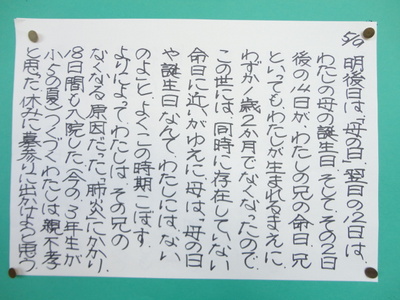 5/9
明後日は、「母の日」、翌日の12日は、
わたしの母の誕生日。そして、その2日
後の14日が、わたしの兄の命日。兄
といっても、わたしが生まれるまえに、
わずか1歳2か月でなくなったので、
この世には、同時に存在していない。
命日に近いがゆえに、母は、「母の日
や誕生日なんて、わたしには、ない
のよ」と、よく、この時期、こぼす。
よりによって、わたしは、その兄の
なくなる原因だった「肺炎」にかかり、
18日間も入院した(今の、3年生が
小5の夏)。つくづく、わたしは、親不孝
と思った。休みに、墓参りに出かけようと思う。